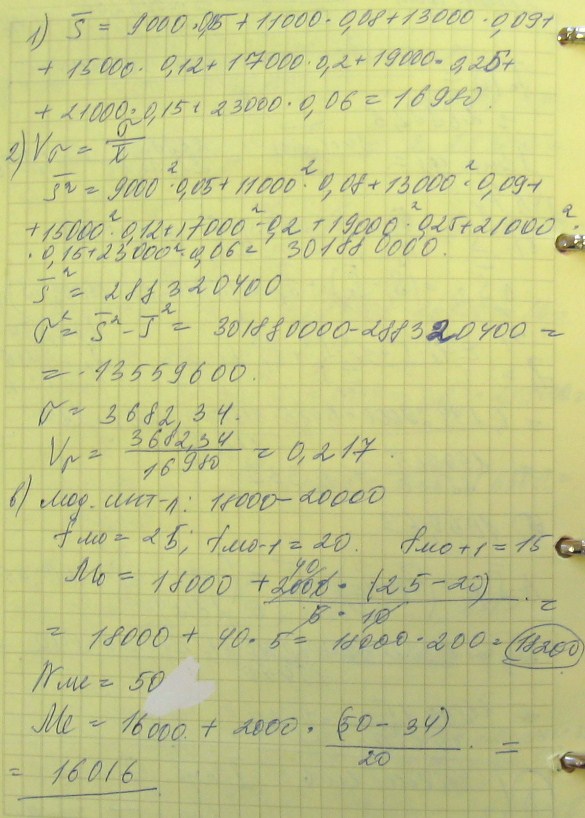 1) S̅ = 9000·0,05+11000·0,08+13000·0,09+
+15000·0,12+17000·0,2+19000·0,25+
+21000·0,15+23000·0,06=16980.
2) Vσ = σ/x̅
S̅² = 9000²·0,05+11000²·0,08+13000²·0,09+
+15000²·0,12+17000²·0,2+19000²·0,25+21000²·
·0,15+23000²·0,06= 301880000.
S̅² = 288320400
σ² = S̅² - S̅² = 301880000-288320400 =
= 13559600.
σ = 3682,34.
Vσ = 3682,34/16980 = 0,217.
в) мод. инт-л: 18000-20000
fмо = 25; fмо-1 = 20. fмо+1 = 15
Мо = 18000 + 2000·(25-20)/5·10 =
40
= 18000 + 40·5 = 18000·200 = 18200
Nме = 50
Ме = 16000 + 2000·(50-34)/20 =
= 16016